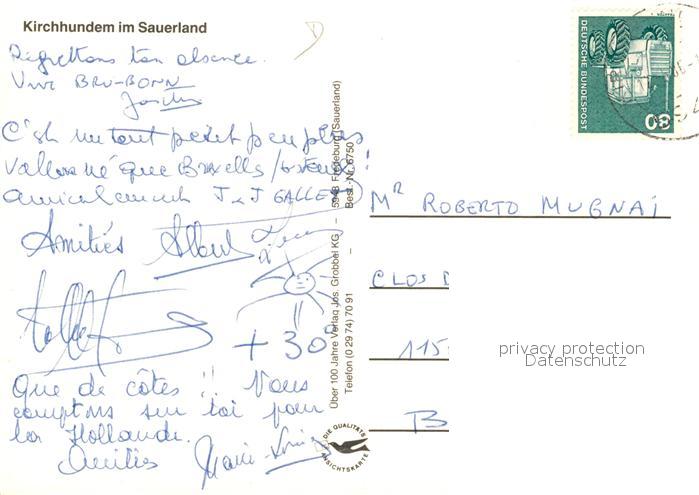 Kirchhundem im Sauerland
Régrettons ton absence.
Vive BRU-BONN
C'est un tout petit peu plus
vallonné que Bruxelles
amicalement J et J GALLE
Amitiés
+ 30°
Que de côtes !! Nous
comptons sur toi pour
la Hollande.
Amitiés Marie-
Über 100 Jahre Verlag Jos. Grobbel KG – 5948 Fredeburg (Sauerland)
Telefon (0 29 74) 70 91 – Best.-Nr. 6750
DIE QUALITÄTS
ANSICHTSKARTE
DEUTSCHE BUNDESPOST
80
Mr ROBERTO MUGNAI
CLOS D
115
B
privacy protection
Datenschutz